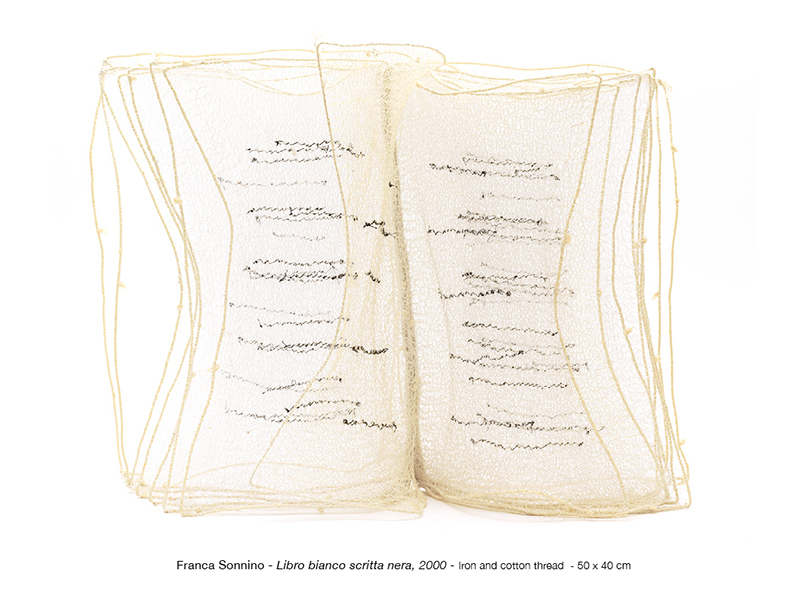 Franca Sonnino - Libro bianco scritta nera, 2000 - Iron and cotton thread - 50 x 40 cm